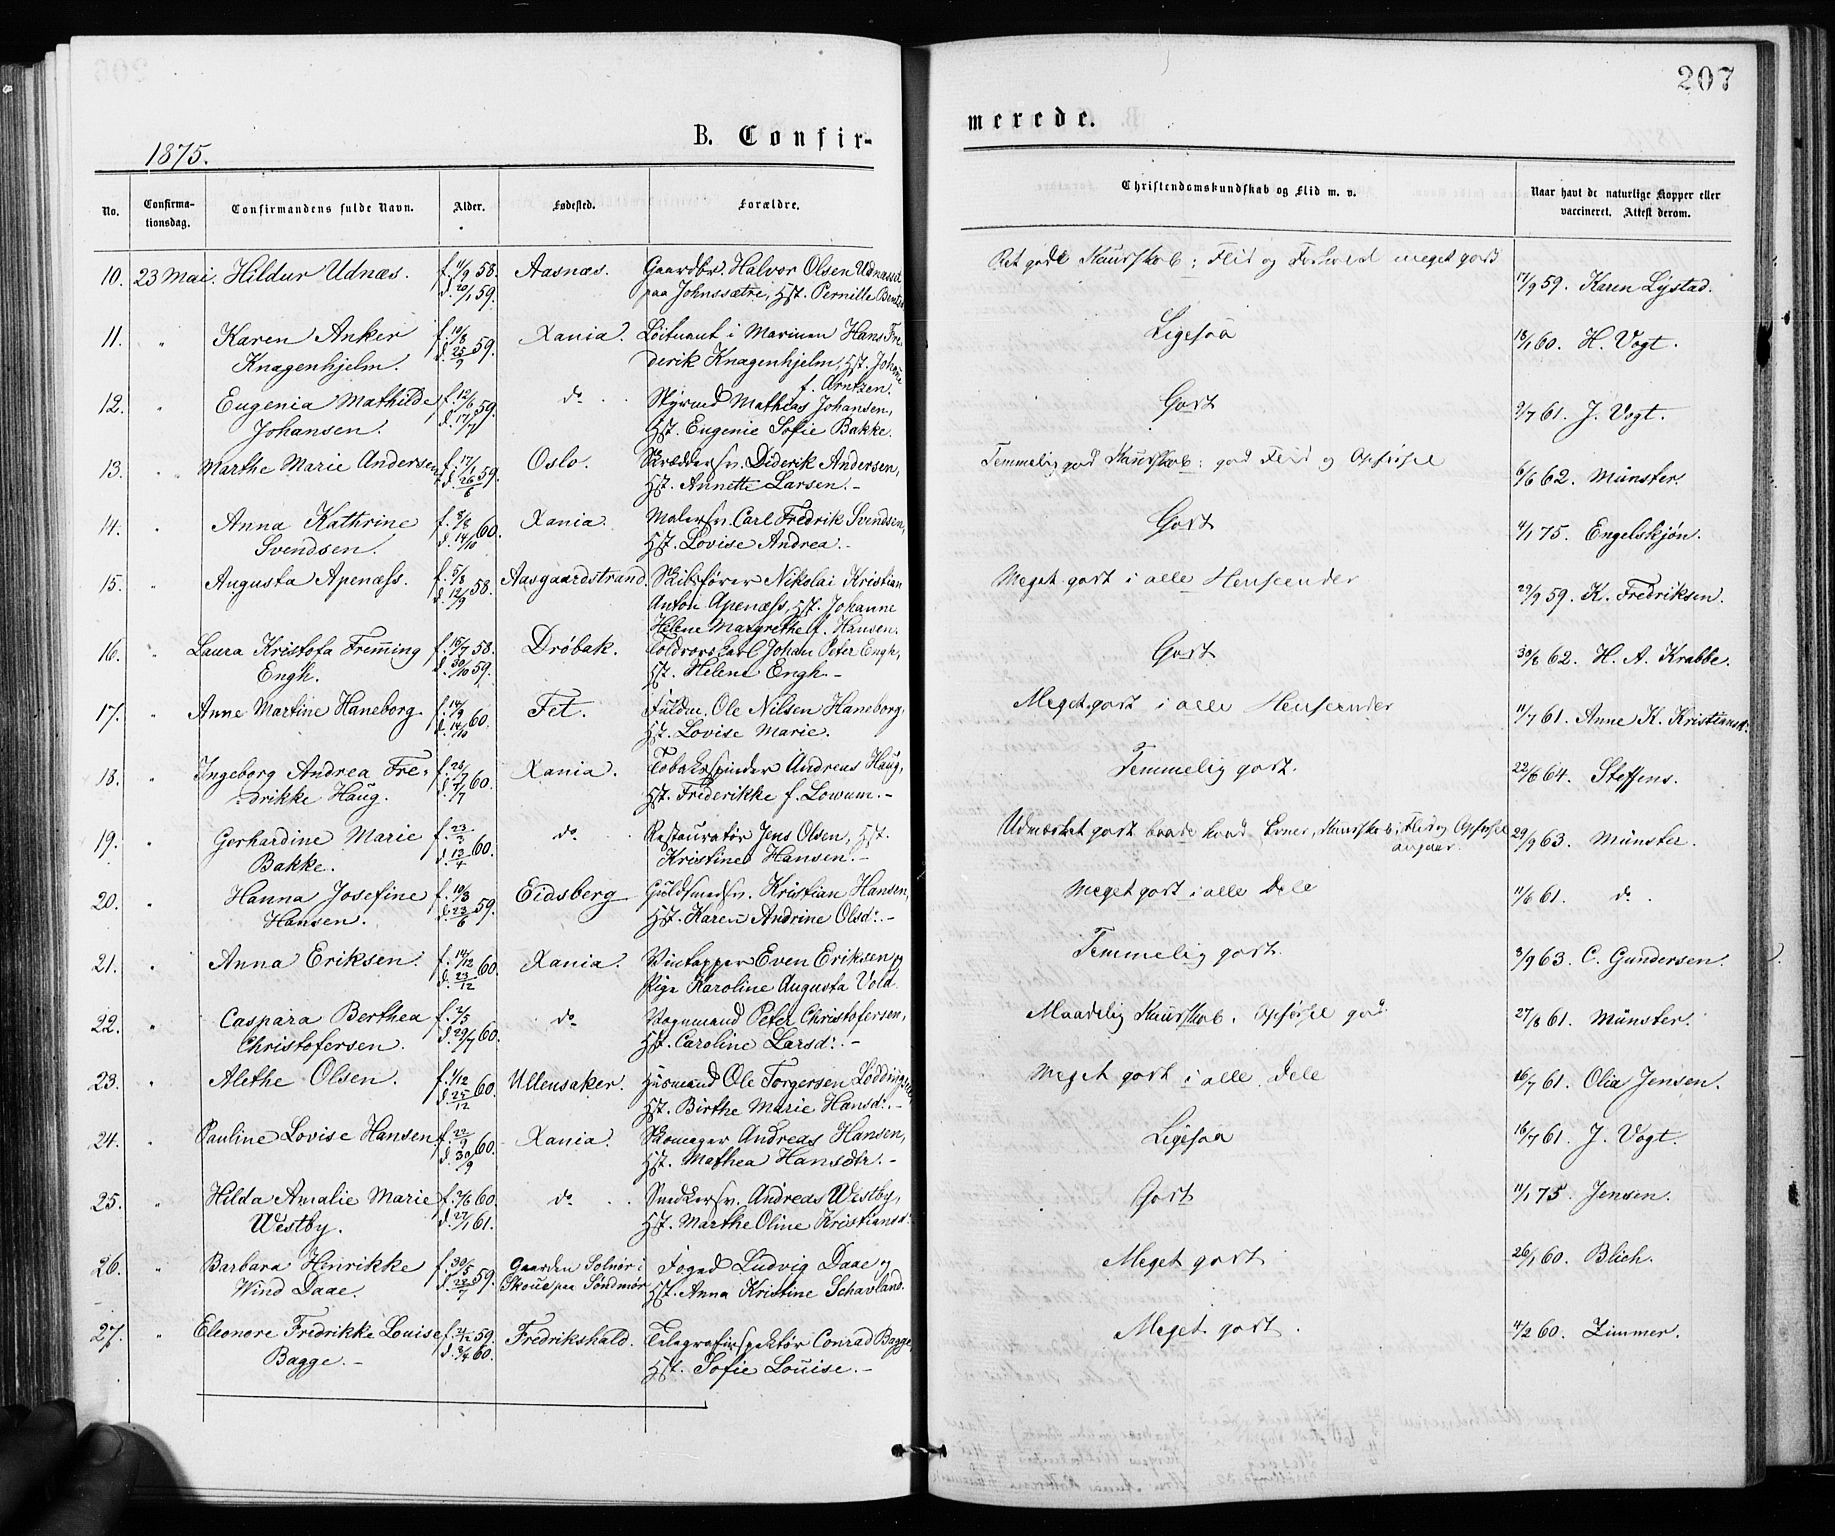 207
1875.
B. Confir-
merede.
No.
Confirma-
tionsdag.
Confirmandens fulde Navn.
Alder.
Fødested.
Forældre.
Christendomskundskab og Flid m. v.
Naar havt de naturlige Kopper eller
vaccineret. Attest derom.
10. 23 Mai. Hildur Udnæs. f. 11/9 58. Aasnæs. Gaardbr. Halvor Olsen Udnæs
d. 20/1 59. paa Johnssætre, Hst. Pernille
Ret godt Kundskab; Flid og Forhold meget godt
17/9 59. Karen Lystad.
11. " Karen Anker f. 10/8 59. Xania. Løitnant i Marinen Hans Fre-
Knagenhjelm. d. 25/9 derik Knagenhjelm, Hst. Johanne
f. Arntzen.
Ligesaa
18/1 60. H. Vogt.
12. " Eugenia Mathilde f. 12/6 59. do Styrmd Mathias Johansen,
Johansen. d. 17/7 Hst. Eugenie Sofie Bakke.
Godt
2/7 61. J. Vogt.
13. " Marthe Marie Andersen f. 17/1 59. Oslo. Skræddersv. Diderik Andersen,
d. 26/6 Hst. Annette Larsen.-
Temmelig god Kundskab; god Flid og Opførsel
6/6 62. Münster.
14. " Anna Kathrine f. 8/8 60. Xania. Malersv. Carl Fredrik Svendsen,
Svendsen. d. 14/10 Hst. Lovise Andrea.-
Godt
4/1 75. Engelskjøn.
15. " Augusta Apenæss. f. 5/8 58. Aasgaardstrand. Skibsfører Nikolai Kristian
d. 12/9 Anton Apenæss, Hst. Johanne
Helene Margrethe f. Hansen.
Meget godt i alle Henseender
29/9 59. K. Fredriksen.
16. " Laura Kristofa Fremming f. 15/7 58. Drøbak. Toldroro Carl Johan Peter Engh,
Engh. d. 30/10 59. Hst. Helene Engh-
Godt
30/8 62. H. A. Krabbe.
17. " Anne Martine Haneborg f. 14/9 60. Fet. Fuldm. Ole Nilsen Haneborg,
d. 14/10 Hst. Lovise Marie.
Meget godt i alle Henseender
11/7 61. Anne K. Kristiansdr.
18. " Ingeborg Andrea Fre- 60. Xania. Tobakspinder Andreas Haug,
drikke Haug. Hst. Friderikke f. Lowum.-
Temmelig godt.
22/6 64. Steffens.
19. " Gerhardine Marie f. 23/3 60. do Restauratør Jens Olsen, Hst.
Bakke. d. 13/4 Kristine Hansen.-
Udmærket godt baade hvad Evner, Kundskab, Flid og Opførsel
angaar.
29/9 63. Münster.
20. " Hanna Josefine f. 10/3 59. Eidsberg Guldsmedsv. Kristian Hansen,
Hansen. d. 23/6 Hst. Karen Andrine Olsdr.-
Meget godt i alle Dele
11/6 61. do.
21. " Anna Eriksen. f. 14/12 60. Xania. Vintapper Even Eriksen og
d. 23/12 Pige Karoline Augusta Vold.
Temmelig godt.
3/9 63. C. Gundersen.
22. " Caspara Berthea f. 2/5 60. do Vognmand Peter Christofersen,
Christofersen. d. 29/7 Hst. Caroline Larsdr.-
Maadelig Kundskab. Opførsel god
27/8 61. Münster.
23. " Alethe Olsen. f. 1/12 60. Ullensaker. Husmand Ole Torgersen
d. 25/12 Hst. Birthe Marie Hansdr.-
Meget godt i alle Dele
16/7 61. Olia Jensen.
24. " Pauline Lovise Hansen. f. 22/9 60. Xania. Skomager Andreas Hansen,
d. 30/9 Hst. Mathea Hansdtr.-
Ligesaa
16/7 61. J. Vogt.
25. " Hilda Amalie Marie f. 2/6 60. do Snedkersv. Andreas Westby,
Westby. d. 27/1 61. Hst. Marthe Oline Kristiansdr.
Godt
11/1 75. Jensen.
26. " Barbara Henrikke f. 30/5 59. Gaarden Solnør i Foged Ludvig Daae og
Wind Daae. d. 22/7 Skoue paa Søndmør Hst. Anna Kristine Schavland.
Meget godt
26/1 60. Blich.
27. " Eleonore Fredrikke Louise f. 2/12 59. Fredrikshald. Telegrafinspektør Conrad Bagge,
Bagge.- d. 3/4 60. Hst. Sofie Louise.-
Meget godt.
4/2 60. Zimmer.